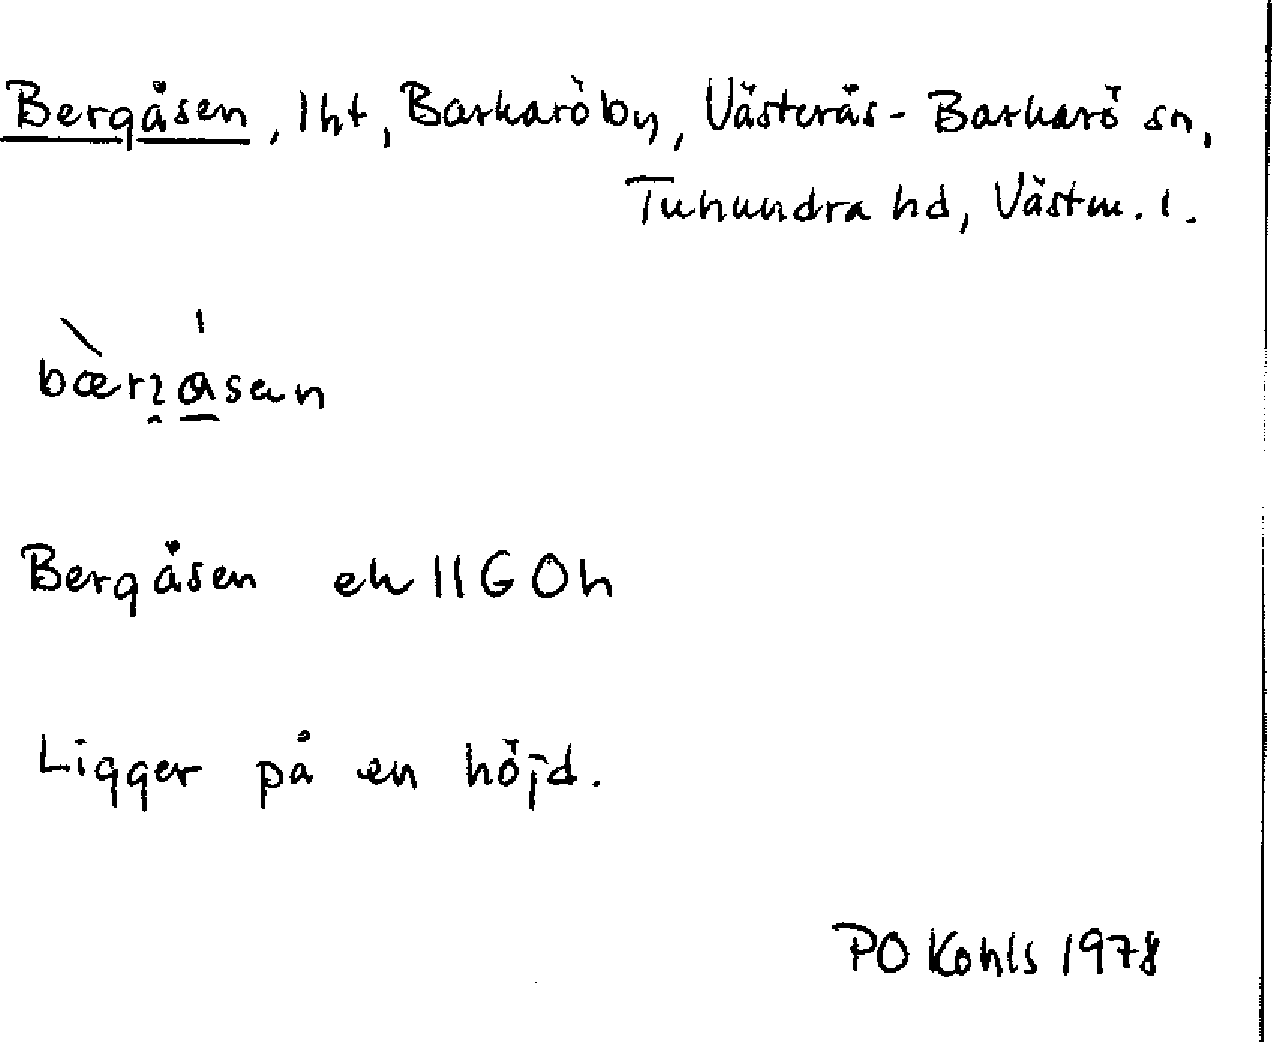 Bergåsen, lht, Barkaröby, Västerås-Barkarö sn,
Tuhundra hd, Västm. l.
Bergåsen ek 11G 0h
Ligger på en höjd.
PO Kohls 1978